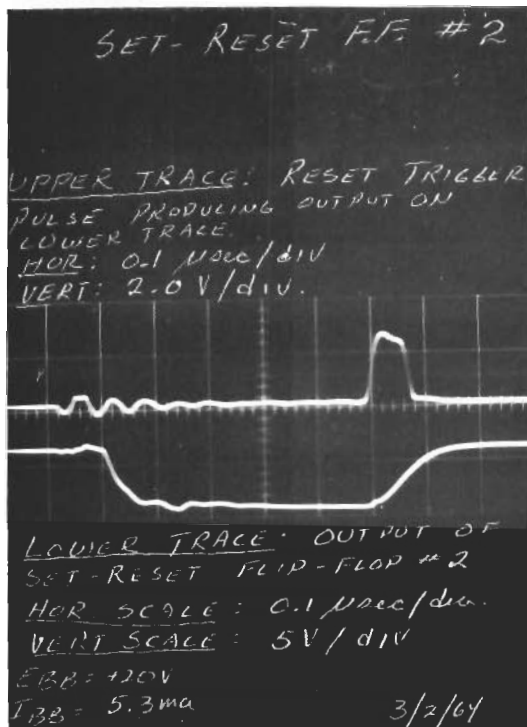 SET-RESET F.F. #2
UPPER TRACE: RESET TRIGGER
PULSE PRODUCING OUTPUT ON
LOWER TRACE.
HOR: 0.1 µsec/div
VERT: 2.0 V/div.
LOWER TRACE: OUTPUT OF
SET-RESET FLIP-FLOP #2
HOR SCALE: 0.1 µsec/div.
VERT SCALE: 5V/div
EBB = +20V
IBB = 5.3ma
3/2/64